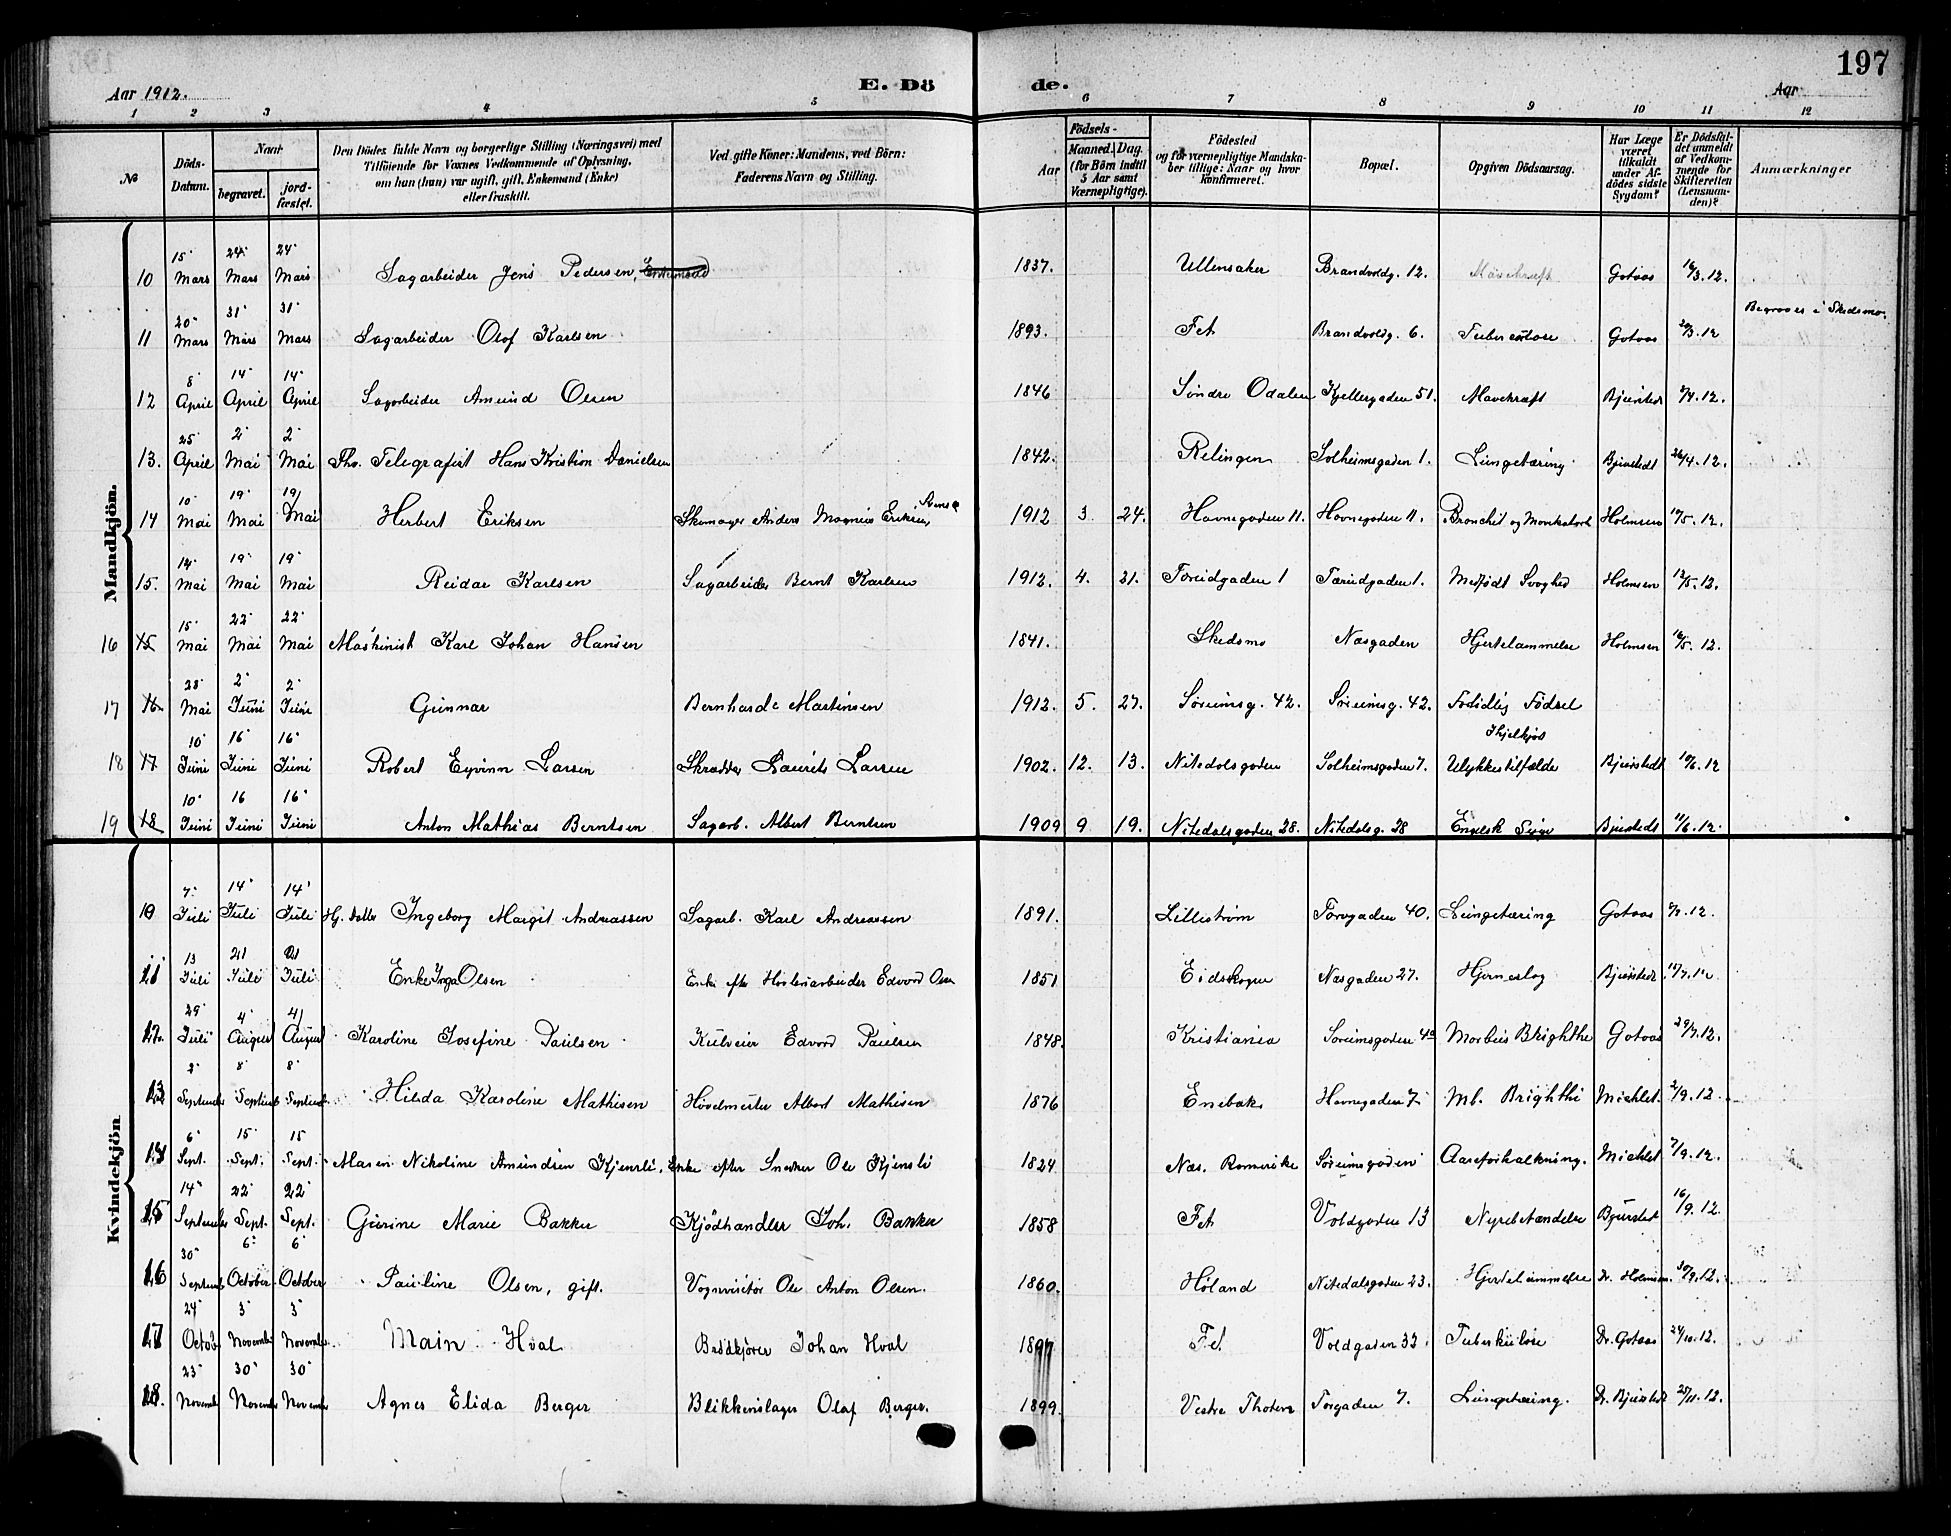 197
Aar 1912.
E. Dö
de.
Aar
1 2 3 4 5 6 7 8 9 10 11 12
No
Döds-Datum.
Naar
begravet.
jord-fæstet.
Den Dödes fulde Navn og borgerlige Stilling (Næringsvei) med
Tilföiende for Voxnes Vedkommende af Oplysning,
om han (hun) var ugift, gift, Enkemand (Enke)
eller fraskilt.
Ved gifte Koner: Mandens, ved Börn:
Faderens Navn og Stilling.
Födsels-
Aar
Maaned. Dag.
(for Börn indtil
5 Aar samt
Værnepligtige).
Födested
og for værnepligtige Mandska-
ber tillige: Naar og hvor
konfirmeret.
Bopæl.
Opgiven Dödsaarsag.
Har Læge
været
tilkaldt
under Af-
dödes sidste
Sygdom?
Er Dödsfal-
det anmeldt
af Vedkom-
mende for
Skifteretten
(Lensman-
den)?
Anmærkninger
Mandkjön.
10 15' Mars 24' Mars 24' Mars Sagarbeider Jens Pedersen, 1837. Ullensaker Brandvoldg. 12. Mavekræft Gotaas 16/3.12.
11 20' Mars 31' Mars 31' Mars Sagarbeider Olof Karlsen 1893. Fet Brandvoldg. 6. Tuberculose Gotaas 20/3.12 Begraves i Skedsmo.
12 8' April 14' April 14' April Sagarbeider Amund Olsen 1846 Söndre Odalen Kjellergaden 51. Mavekræft Bjurstedt 9/4.12.
13. 25 April 2' Mai 2' Mai Fhv. Telegrafist Hans Kristian Danielsen 1842. Relingen Solheimsgaden 1. Lungetæring Bjurstedt 26/4.12.
14 10' Mai 19' Mai 19/ Mai Herbert Eriksen Skomager Anders Magnus Eriksen, 1912 3 24. Havnegaden 11. Havnegaden 11. Bronchit og Holmsen 10/5.12.
15. 14' Mai 19' Mai 19' Mai Reidar Karlsen Sagarbeider Bernt Karlsen 1912. 4. 21. Toreidgaden 1 Toreidgaden 1. Medfödt Svaghed Holmsen 12/5.12.
16 15 15' Mai 22' Mai 22' Mai Maskinist Karl Johan Hansen 1841. Skedsmo Næsgaden Hjertelammelse Holmsen 16/5.12.
17 16 28' Mai 2' Juni 2' Juni Gunnar Bernharde Martinsen 1912. 5. 27. Sørumsg. 42. Sørumsg. 42. Fortidlig Födsel
18 17 10' Juni 16' Juni 16' Juni Robert Eyvinn Larsen Skrædder Laurits Larsen 1902. 12. 13. Nitedalsgaden Solheimsgaden 7. Ihjelkjört Ulykkestilfælde Bjurstedt 10/6.12
19 18 10' Juni 16 Juni 16' Juni Anton Mathias Berntsen Sagarb. Albert Berntsen 1909 9 19. Nitedalsgaden 28. Nitedalsg. 28 Engelsk Syge Bjurstedt 11/6.12.
Kvindekjön
10 7' Juli 14' Juli 14' Juli Hj. Datter Ingeborg Margit Andreassen Sagarb. Karl Andreassen 1891. Lillestrøm Torvgaden 40. Lungetæring Gotaas 9/7.12.
11 13 Juli 21 Juli 21 Juli Enke Inga Olsen Enke efter Edvard Olsen 1851 Eidskogen Næsgaden 27. Hjerneslag Bjurstedt 17/7.12
12. 29' Juli 4' August 4/ August Karoline Josefine Paulsen Kulveier Edvard Paulsen 1848. Kristiania Sørumsgaden 4a Morbus Brighthe Gotaas 29/7.12.
13 2' September 8' September 8' September Hilda Karoline Mathisen Hövelmester Albert Mathisen 1876 Enebak Havnegaden 7 Mb. Brighthi Michlet. 2/9.12
14 6' Sept. 15' Sept. 15 Sept. Maren Nikoline Amundsen Kjensli, Enke efter Snedker Ole Kjensli 1824 Næs. Romerike Sørumsgaden Aareforkalkning. Michlet 7/9.12.
15 14' September 22' Sept. 22' Sept. Gurine Marie Bakker Kjödhandler Joh. Bakker 1858 Fet Voldgaden 13 Nyrebetændelse Bjurstedt 16/9.12.
16 30' September 6' October 6' October Pauline Olsen, gift. Vognvisitör Ole Anton Olsen. 1860. Höland Nitedalsgaden 23. Hjertelammelse Dr. Holmsen. 30/9.12.
17 24' October 3' November 3' November Main Hval Brödkjører Johan Hval 1897 Fet Voldgaden 32. Tuberkulose Dr. Gotaas 24/10.12.
18. 23' November 30' November 30' November Agnes Elida Berger Blikkenslager Olaf Berger. 1899. Vestre Thoten Torgaden 7. Lungetæring. Dr. Bjurstedt 25/11.12.